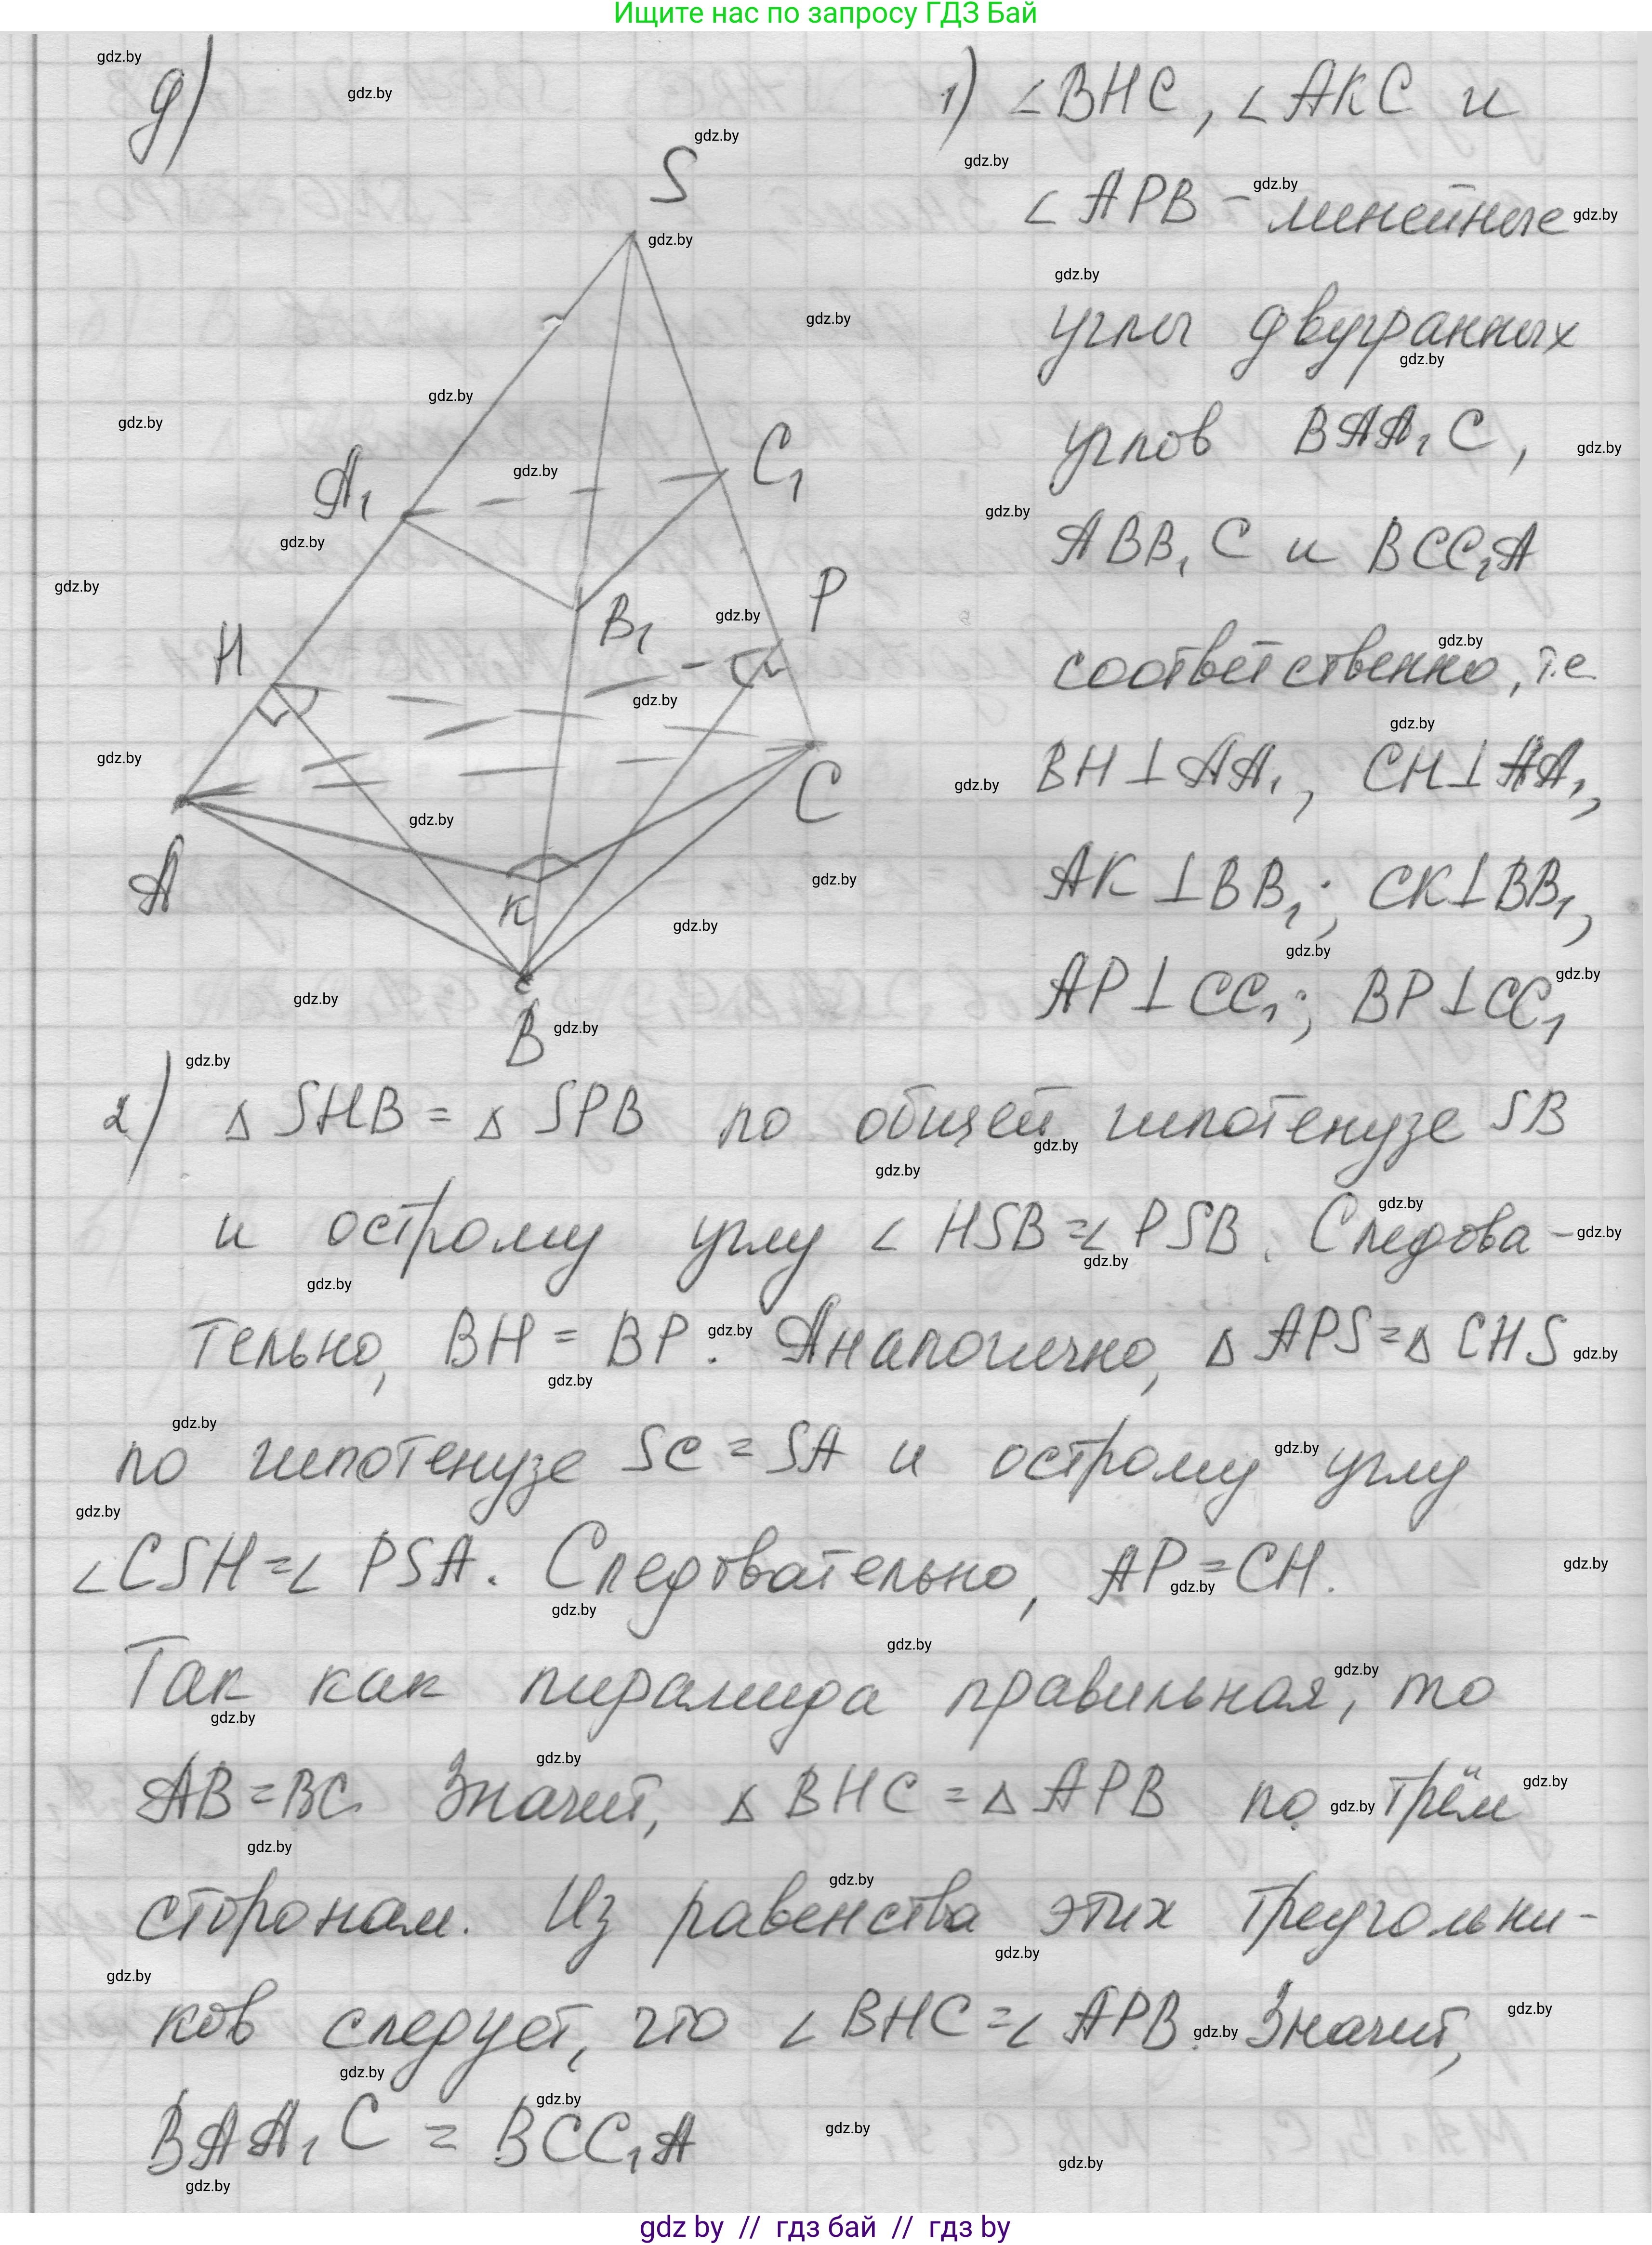 Ищите нас по запросу ГДЗ Бай
д)
1) ∠BHC, ∠AKC и
∠APB - линейные
углы двугранных
углов BAA₁C,
ABB₁C и BCC₁A
соответственно, т.е
BH⊥AA₁, CH⊥AA₁,
AK⊥BB₁; CK⊥BB₁,
AP⊥CC₁; BP⊥CC₁
S
A₁
C₁
B₁
P
H
A
C
K
B
2) Δ SHB = Δ SPB по общей гипотенузе SB
и острому углу ∠ HSB = ∠ PSB. Следова-
тельно, BH = BP. Аналогично, Δ APS = Δ CHS
по гипотенузе SC = SA и острому углу
∠CSH = ∠ PSA. Следовательно, AP = CH.
Так как пирамида правильная, то
AB = BC. Значит, Δ BHC = Δ APB по трём
сторонам. Из равенства этих треугольни-
ков следует, что ∠ BHC = ∠ APB. Значит,
BAA₁C = BCC₁A
gdz.by
gdz by // гдз бай // гдз by